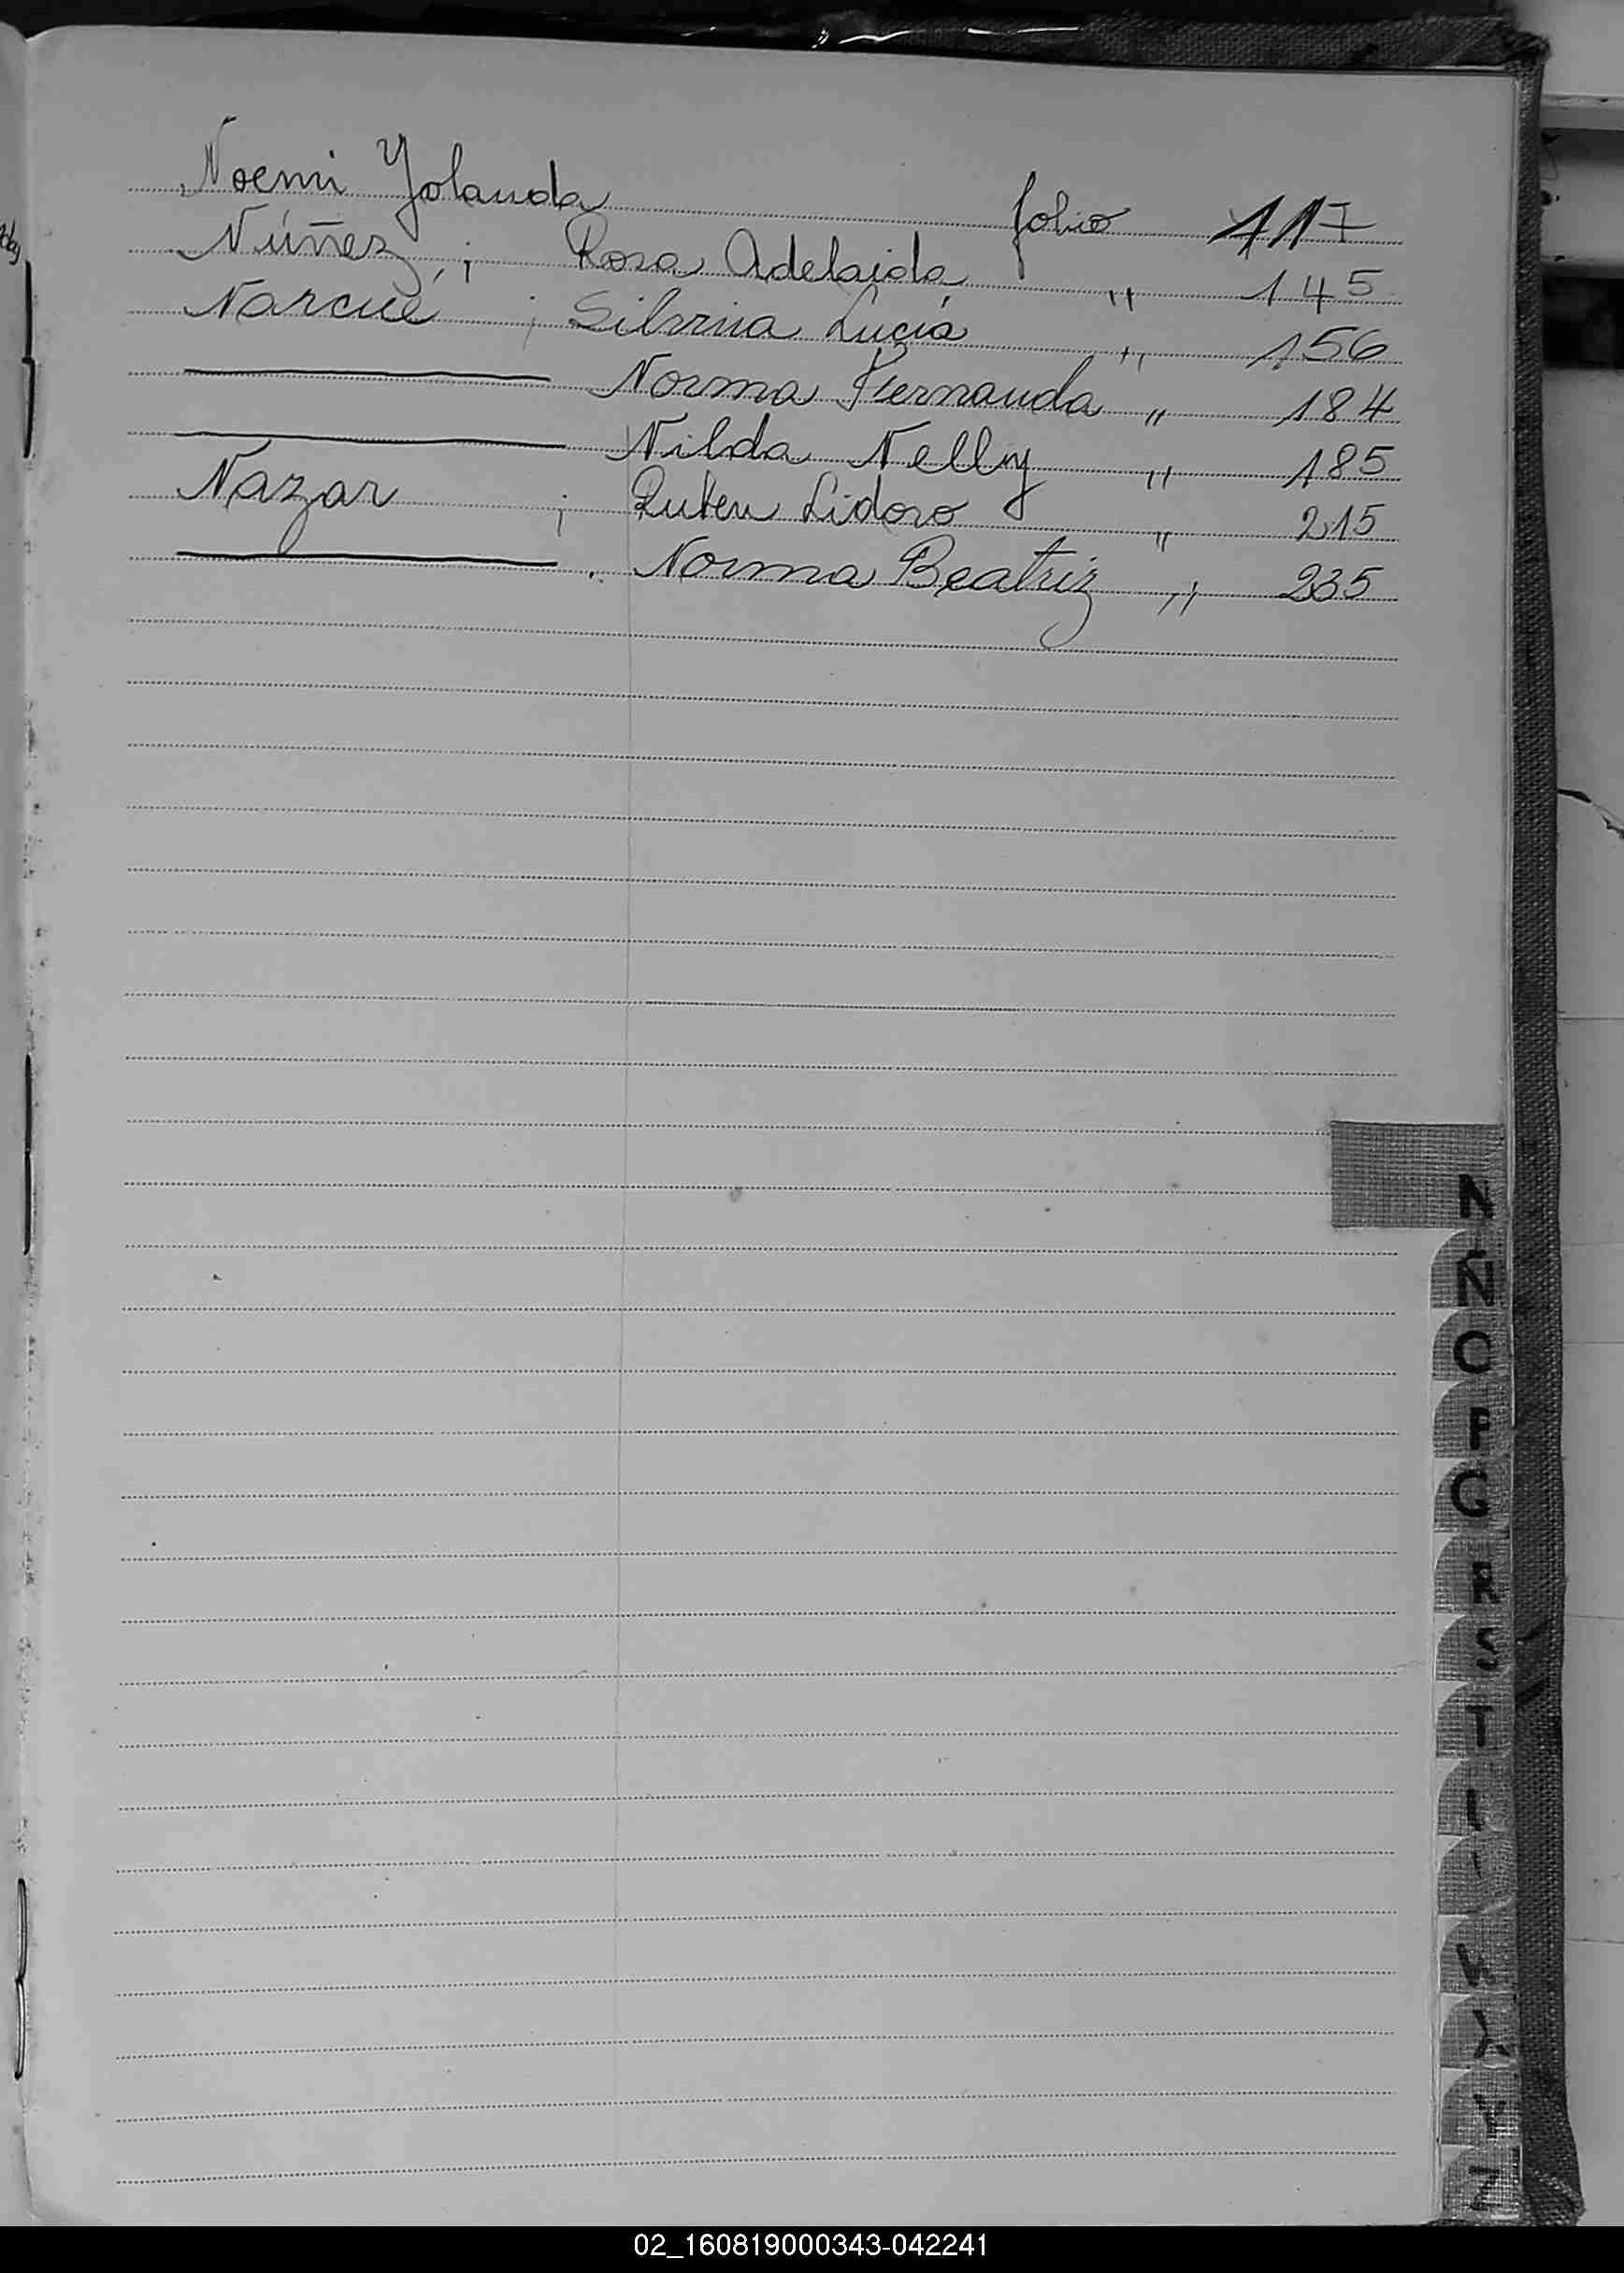 Noemi Yolanda folio 117
Núñez, ; Rosa Adelaida " 145
Narcué ; Silvina Lucía " 156
——— Norma Fernanda " 184
——— Nilda Nelly " 185
Nazar ; Ruben Lidoro " 215
——— . Norma Beatriz " 235
N
Ñ
O
P
Q
R
S
T
X
Y
Z
02_160819000343-042241